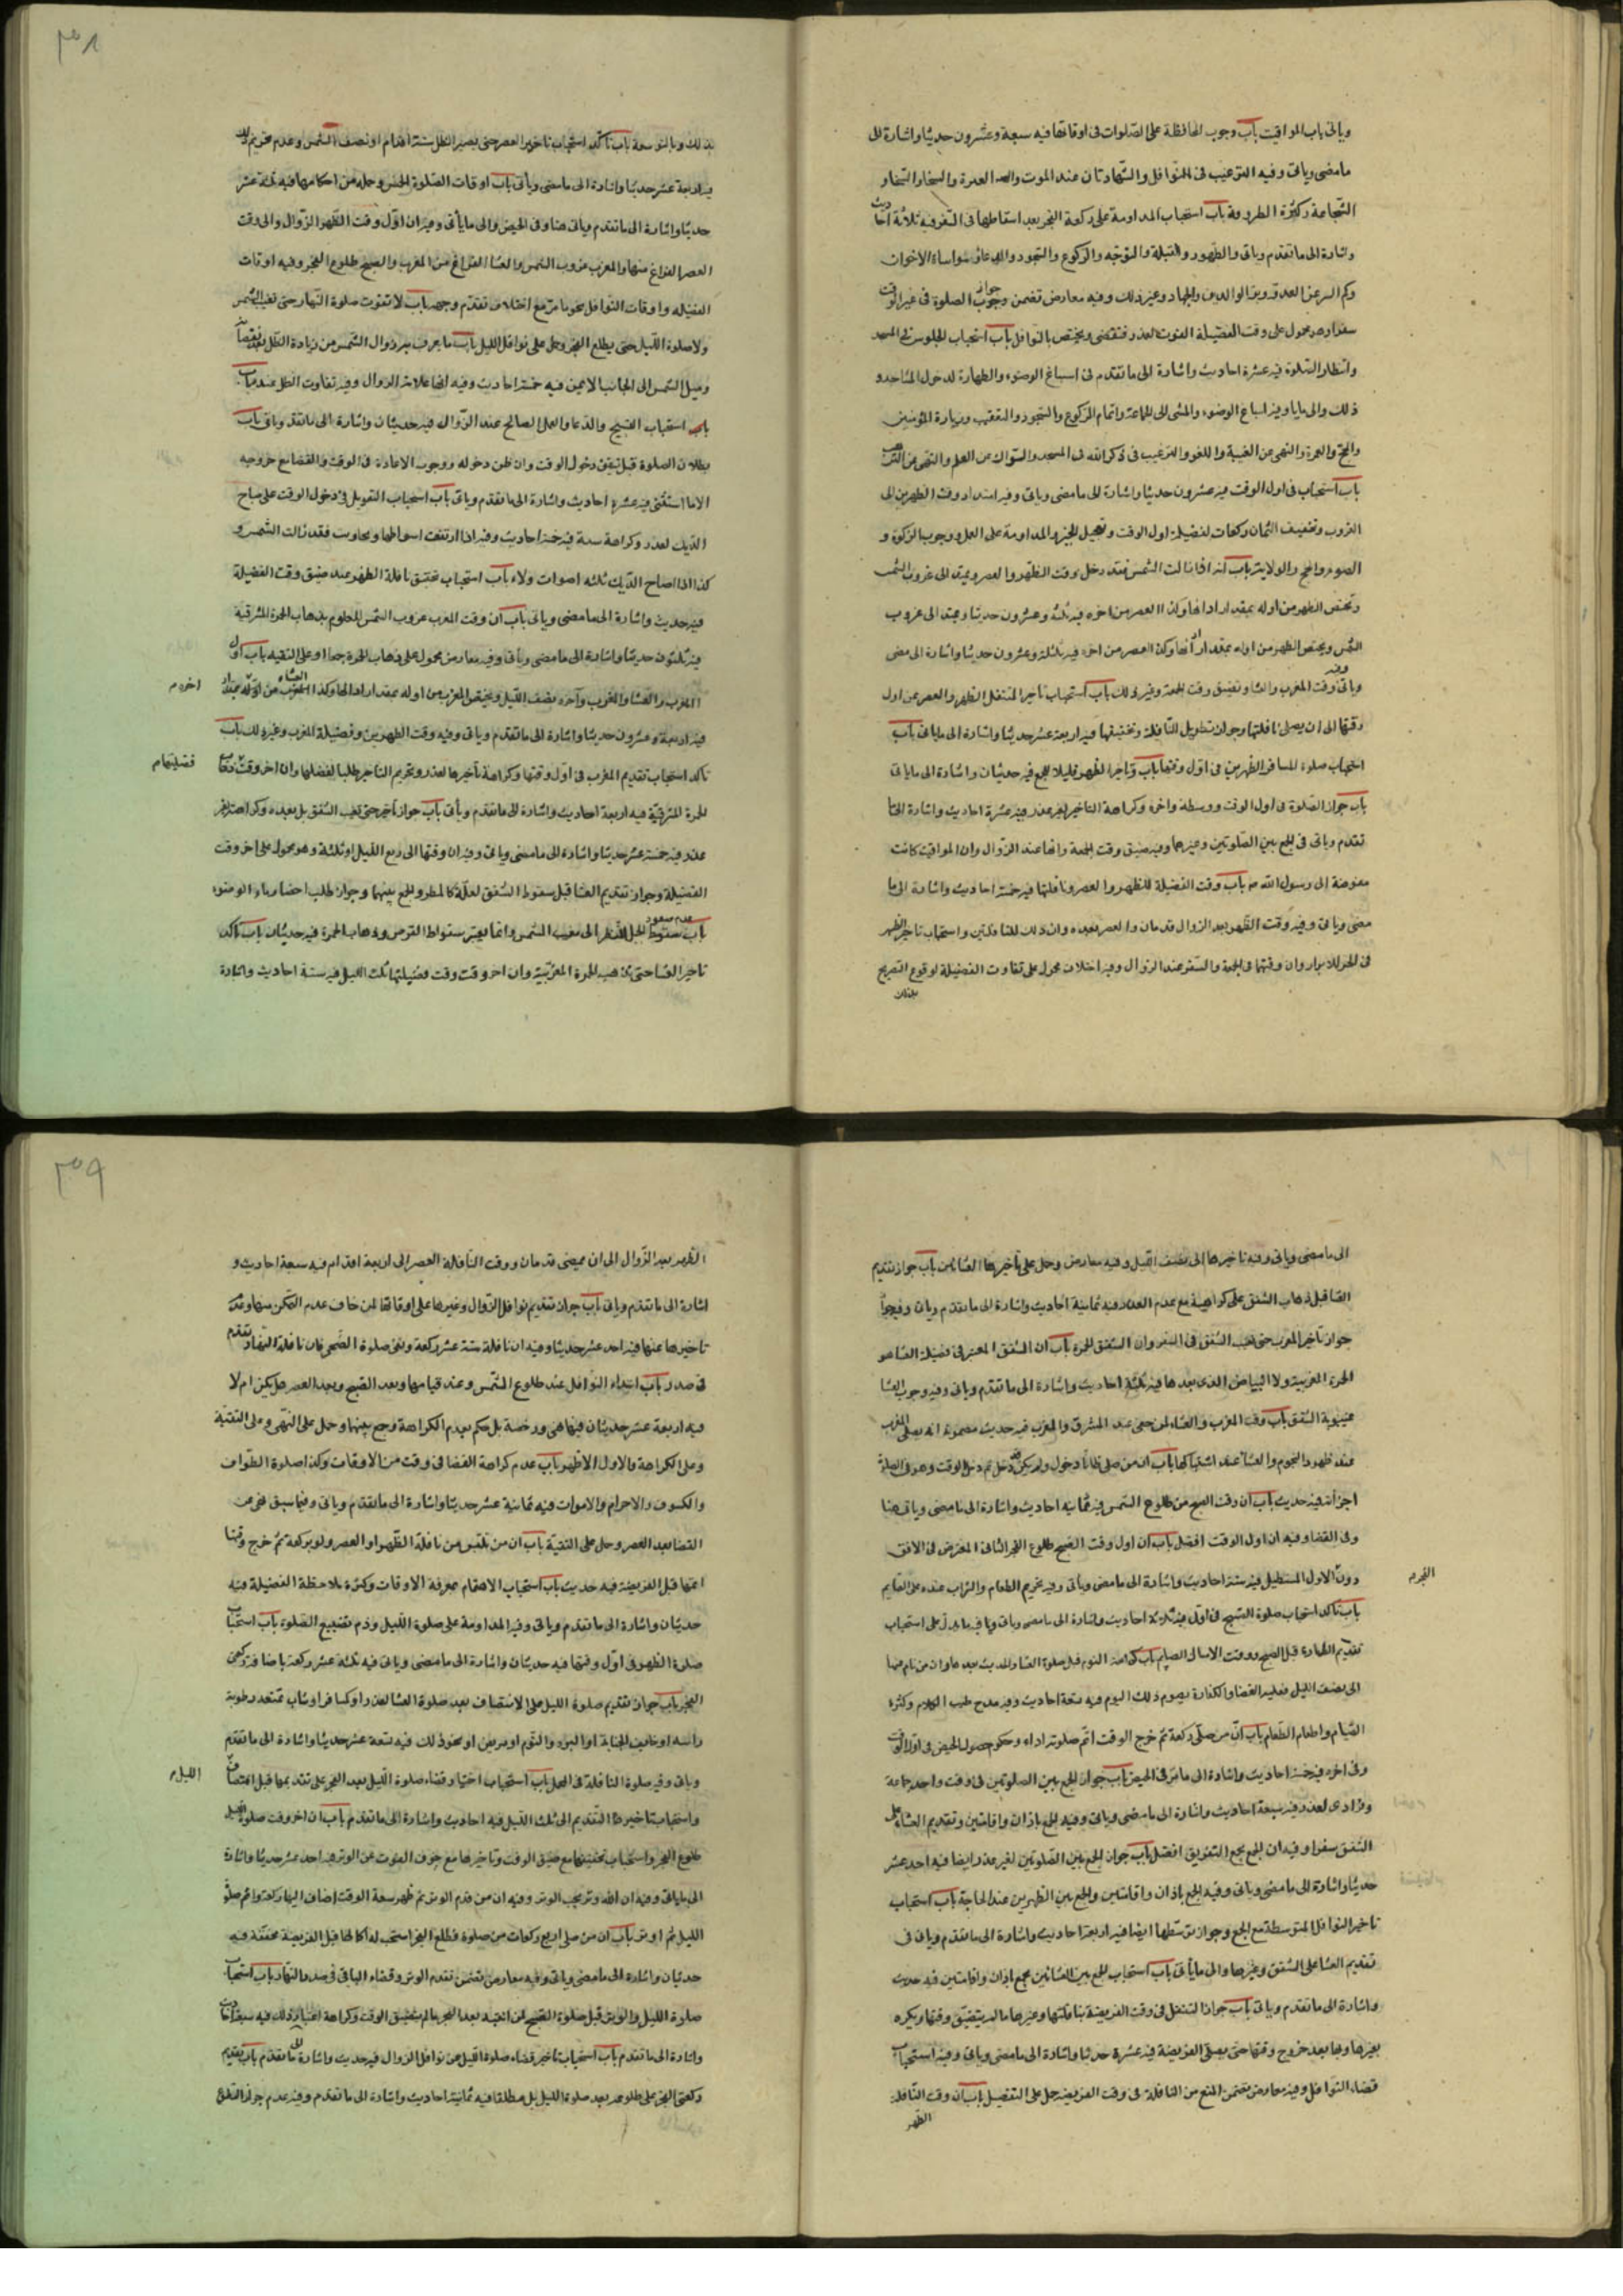 ٣٠٨
وياتى باب المواقيت باب وجوب المحافظة على الصلوات فى اوقاتها فيه سبعة وعشرون حديثا واشارة الى
ما مضى وياتى وفيه الترغيب فى النوافل والشهادتان عند الموت
باب استحباب المداومة على ركعة الفجر بعد اسقاطها فى السفر فيه ثلاثة احاديث
واشارة الى ما تقدم وياتى والطهور والقبلة والتوجه والركوع والسجود والدعاء ومواساة الاخوان
وكم السر عن العدو وبر الوالدين والجهاد وغير ذلك وفيه معارض تضمن جواز الصلوة فى غير الوقت
محمول على وقت الفضيلة ويختص بالنوافل باب استحباب الجلوس فى المسجد
وانتظار الصلوة فيه عشرة احاديث واشارة الى ما تقدم فى اسباغ الوضوء والطهارة لدخول المساجد و
ذلك والى ما ياتى وفيه اسباغ الوضوء والمشى الى الجماعة واتمام الركوع والسجود والتعقيب وزيارة المؤمنين
والحج والعمرة والنهى عن الغيبة واللغو والترغيب فى ذكر الله فى المسجد والسؤال عن العلم والنهى عن
باب استحباب فى اول الوقت فيه عشرون حديثا واشارة الى ما مضى وياتى وفيه امتداد وقت الظهرين الى
الغروب وتخفيف الثمان ركعات لفضيلة اول الوقت وتعجيل الخير والمداومة على العمل ووجوب الزكوة و
الصوم والحج والولاية باب انه اذا زالت الشمس فقد دخل وقت الظهر والعصر ويمتد الى غروب الشمس
وتختص الظهر من اوله بمقدار اداءها وكذا العصر من اخره فيه ثلثة وعشرون حديثا ويمتد الى غروب
الشمس ويختص الظهر من اوله بمقدار اداءها وكذا العصر من اخره فيه ثلثة وعشرون حديثا واشارة الى مضى
وياتى وفيه وقت المغرب والعشا وتضيق وقت الجمعة وغير ذلك باب استحباب تاخير المتنفل الظهر والعصر عن اول
وقتها الى ان يصلى نافلتها وجواز تطويل النافلة وتخفيفها فيه اربعة عشر حديثا واشارة الى ما ياتى باب
استحباب صلوة المسافر الظهرين فى اول وقتها باب وتاخير الظهر قليلا للجمع فيه حديثان واشارة الى ما ياتى
باب جواز الصلوة فى اول الوقت ووسطه واخره وكراهة التاخير لغير عذر فيه عشرة احاديث واشارة الى ما
تقدم وياتى فى الجمع بين الصلوتين وغيرها وفيه ضيق وقت الجمعة وانها عند الزوال وان المواقيت كانت
مفوضة الى رسول الله ص باب وقت الفضيلة للظهر والعصر ونافلتها فيه خمسة احاديث واشارة الى ما
مضى وياتى وفيه وقت الظهر بعد الزوال قدمان والعصر بعده وان ذلك للنافلتين واستحباب تاخير الظهر
فى الحر للابراد وان وقتها فى الجمعة والسفر عند الزوال وفيه اختلاف محمول على تفاوت الفضيلة لوقوع التصريح
بذلك
بذلك وبالتوسعة باب تاكد استحباب تاخير العصر حتى يصير الظل ستة اقدام او نصف الشمس وعدم تحريم ذلك
فيه اربعة عشر حديثا واشارة الى ما مضى وياتى باب اوقات الصلوة الخمس وجملة من احكامها فيه ثلثة عشر
حديثا واشارة الى ما تقدم وياتى هنا وفى الحيض والى ما يأتى وفيه ان اول وقت الظهر الزوال والى وقت
العصر الفراغ منها والمغرب غروب الشمس والعشا الفراغ من المغرب والصبح طلوع الفجر وفيه اوقات
الفضيلة واوقات النوافل نحو ما مر مع اختلاف تقدم وجهه باب لا تفوت صلوة النهار حتى تغيب الشمس
ولا صلوة الليل حتى يطلع الفجر وحمل على نوافل الليل باب ما يعرف به زوال الشمس من زيادة الظل بعد نقصانه
وميل الشمس الى الجانب الايمن فيه خمسة احاديث وفيه انها علامة الزوال وفيه تفاوت الظل
باب استحباب التسبيح والدعاء والعمل الصالح عند الزوال فيه حديثان واشارة الى ما تقدم وياتى باب
بطلان الصلوة قبل تيقن دخول الوقت وان ظن دخوله ووجوب الاعادة فى الوقت والقضا مع خروجه
الا ما استثنى فيه عشرة احاديث واشارة الى ما تقدم وياتى باب استحباب التعويل فى دخول الوقت على صياح
الديك لعذر وكراهة سبه فيه خمسة احاديث وفيه اذا ارتفعت اصواتها وتجاوبت فقد زالت الشمس و
كذا اذا صاح الديك ثلثه اصوات ولاء باب استحباب تخفيف نافلة الظهر عند ضيق وقت الفضيلة
فيه حديث واشارة الى ما مضى وياتى باب ان وقت المغرب غروب الشمس المعلوم بذهاب الحمرة المشرقية
فيه ثلثون حديثا واشارة الى ما مضى وياتى وفيه معارض محمول على ذهاب الحمرة جمعا او على التقيه باب اول
المغرب والعشا والغروب وآخره نصف الليل ويختص المغرب من اوله بمقدار اداءها وكذا العشاء من اخره
اخره م
فيه اربعة وعشرون حديثا واشارة الى ما تقدم وياتى وفيه وقت الظهرين وفضيلة المغرب وغير ذلك باب
تاكد استحباب تقديم المغرب فى اول وقتها وكراهة تاخيرها لعذر وتحريم التاخير طلبا لفضلها وان اخر وقت ذهاب
فضيلتها م
الحمرة المشرقية فيه اربعة احاديث واشارة الى ما تقدم وياتى باب جواز تأخيرها حتى تغيب الشفق بل بعده وكراهته لغير
عذر فيه خمسة عشر حديثا واشارة الى ما مضى وياتى وفيه ان وقتها الى ربع الليل او ثلثه وهو محمول على اخر وقت
الفضيلة وجواز تقديم العشا قبل سقوط الشفق لعلة كالمطر والجمع بينهما وجواز طلب احضار ماء الوضوء
باب عدم صعود الجبل للنظر الى مغيب الشمس وانما يعتبر سقوط القرص وذهاب الحمرة فيه حديثان باب تاكد
تاخير العشا حتى تذهب الحمرة المغربية وان اخر وقت وقت فضيلتها ثلث الليل فيه ستة احاديث واشارة
٣٠٩
الى ما مضى وياتى وفيه تاخيرها الى نصف الليل وفيه معارض وحمل على تأخيرها باب جواز تقديم
العشا قبل ذهاب الشفق على كراهية مع عدم العذر فيه ثمانية احاديث واشارة الى ما تقدم وياتى
جواز تأخير المغرب حتى تغيب الشفق فى السفر وان الشفق الحمرة باب ان الشفق المعتبر فى فضيلة العشا هو
الحمرة المغربية ولا البياض الذى بعدها فيه ثلثة احاديث واشارة الى ما تقدم وياتى وفيه وجوب العشا
بغيبوبة الشفق باب وقت المغرب والعشاء لمن خفى عنه المشرق والمغرب فيه حديث مضمونه انه يصلى المغرب
عند ظهور النجوم والعشا عند اشتباكها باب ان من صلى ظانا دخول ولم يكن دخل ثم دخل الوقت وهو فى الصلوة
اجزأته فيه حديث باب ان وقت الصبح من طلوع الشمس فيه ثمانيه احاديث واشارة الى ما مضى وياتى هنا
وفى القضا وفيه ان اول الوقت افضل باب ان اول وقت الصبح طلوع الفجر الثانى المعترض فى الافق
دون الاول المستطيل فيه ستة احاديث واشارة الى ما مضى وياتى وفيه تحريم الطعام والشراب عنده على الصايم
الفجر م
باب تاكد استحباب صلوة الصبح فى اول فيه ثلاثة احاديث واشارة الى ما مضى وياتى وفيه ما يدل على استحباب
تقديم الطهارة قبل الصبح ووقت الامساك للصايم باب كراهة النوم قبل صلوة العشا والحديث بعدها وان من نام عنها
الى نصف الليل فعليه القضا والكفارة بصوم ذلك اليوم فيه تسعة احاديث وفيه مدح طيب الكلام وكثرة
الصيام واطعام الطعام باب ان من صلى ركعة ثم خرج الوقت اتم صلوته اداء وحكم حصول الحيض فى اول الوقت
وفى اخره فيه خمسة احاديث واشارة الى ما مر فى الحيض باب جواز الجمع بين الصلوتين فى وقت واحد جماعة
وفرادى لعذر فيه سبعة احاديث واشارة الى ما مضى وياتى وفيه الجمع باذان واقامتين وتقديم العشاء على
الشفق سفرا وفيه ان الجمع بجمع التفريق افضل باب جواز الجمع بين الصلوتين لغير عذر ايضا فيه احد عشر
حديثا واشارة الى ما مضى وياتى وفيه الجمع باذان واقامتين والجمع بين الظهرين عند الحاجة باب استحباب
تاخير النوافل المتوسطة مع الجمع وجواز توسطها ايضا فيه اربعة احاديث واشارة الى ما تقدم وياتى فى
تقديم العشا على الشفق وغيرها والى ما يأتى باب استحباب الجمع بين العشائين بجمع باذان واقامتين فيه حديث
واشارة الى ما تقدم وياتى باب جواز التنفل فى وقت الفريضة بنافلتها وغيرها ما لم يتضيق وقتها ويكره
بغيرها وبها بعد خروج وقتها حتى يصلى الفريضة فيه عشرة حديثا واشارة الى ما مضى وياتى وفيه استحباب
قضاء النوافل وفيه معارض تضمن المنع من النافلة فى وقت الفريضة حمل على التفضيل باب ان وقت النافلة
الظهر
الظهر بعد الزوال الى ان يمضى قدمان ووقت النافلة العصر الى اربعة اقدام فيه سبعة احاديث و
اشارة الى ما تقدم وياتى باب جواز تقديم نوافل الزوال وغيرها على اوقاتها لمن خاف عدم التمكن منها
تاخيرها عنها فيه احد عشر حديثا وفيه ان نافلة ستة عشر ركعة ونفى صلوة الضحى فان نافلة النهار تقدم
فى صدر باب ابتداء النوافل عند طلوع الشمس وعند قيامها وبعد الصبح وبعد العصر هل يكره ام لا
فيه اربعة عشر حديثان فيهما نهى ورخصة بل حكم بعدم الكراهة وجمع بينهما وحمل على النهى وعلى التقية
وعلى الكراهة والاول الاظهر باب عدم كراهة القضا فى وقت من الاوقات وكذا صلوة الطواف
والكسوف والاحرام والاموات فيه ثمانية عشر حديثا واشارة الى ما تقدم وياتى وفيما سبق نهى عن
القضا بعد العصر وحمل على التقية باب ان من تلبس من نافلة الظهر او العصر ولو بركعة ثم خرج وقتها
اتمها قبل الفريضة فيه حديث باب استحباب الاهتمام بمعرفة الاوقات وكثرة ملاحظة الفضيلة فيه
حديثان واشارة الى ما تقدم وياتى وفيه المداومة على صلوة الليل وذم تضييع الصلوة باب استحباب
صلوة الظهر فى اول وقتها فيه حديثان واشارة الى ما مضى وياتى فيه ثلثة عشر ركعة باضافة ركعتى
الفجر باب جواز تقديم صلوة الليل على الانتصاف بعد صلوة العشا لعذر او كسافر او شاب تمنعه رطوبة
راسه او خائف الجنابة او البرد والنوم او مريض او نحو ذلك فيه تسعة عشر حديثا واشارة الى ما تقدم
وياتى وفيه صلوة النافلة فى المحمل باب استحباب اختيار قضاء صلوة الليل بعد الفجر على تقديمها قبل انتصاف
الليل م
واستحباب تاخير هذا التقديم الى ثلث الليل فيه احاديث واشارة الى ما تقدم باب ان اخر وقت صلوة الليل
طلوع الفجر واستحباب تخفيفها مع ضيق الوقت وتاخيرها مع خوف الفوت عن الوتر فيه احد عشر حديثا واشارة
الى ما ياتى وفيه ان الله وتر يحب الوتر وفيه ان من قدم الوتر ثم ظهر سعة الوقت اضاف اليها ركعة واتم صلوة
الليل ثم اوتر باب ان من صلى اربع ركعات من صلوة فطلع الفجر استحب له اكمالها قبل الفريضة مخففة فيه
حديثان واشارة الى ما مضى وياتى وفيه معارض تضمن تقديم الوتر وقضاء الباقى فى صدر النهار باب استحباب
صلوة الليل والوتر قبل صلوة الصبح لمن انتبه بعد الفجر ما لم يتضيق الوقت وكراهة اعتياد ذلك فيه سبعة احاديث
واشارة الى ما تقدم باب استحباب تاخير قضاء صلوة الليل عن نوافل الزوال فيه حديث واشارة الى ما تقدم باب تقديم
ركعتى الفجر على طلوعه بعد صلوة الليل بل مطلقا فيه ثمانية احاديث واشارة الى ما تقدم وفيه عدم جواز التطوع